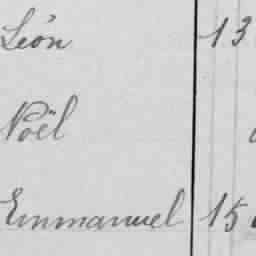 Léon 13
Noël
Emmanuel 15